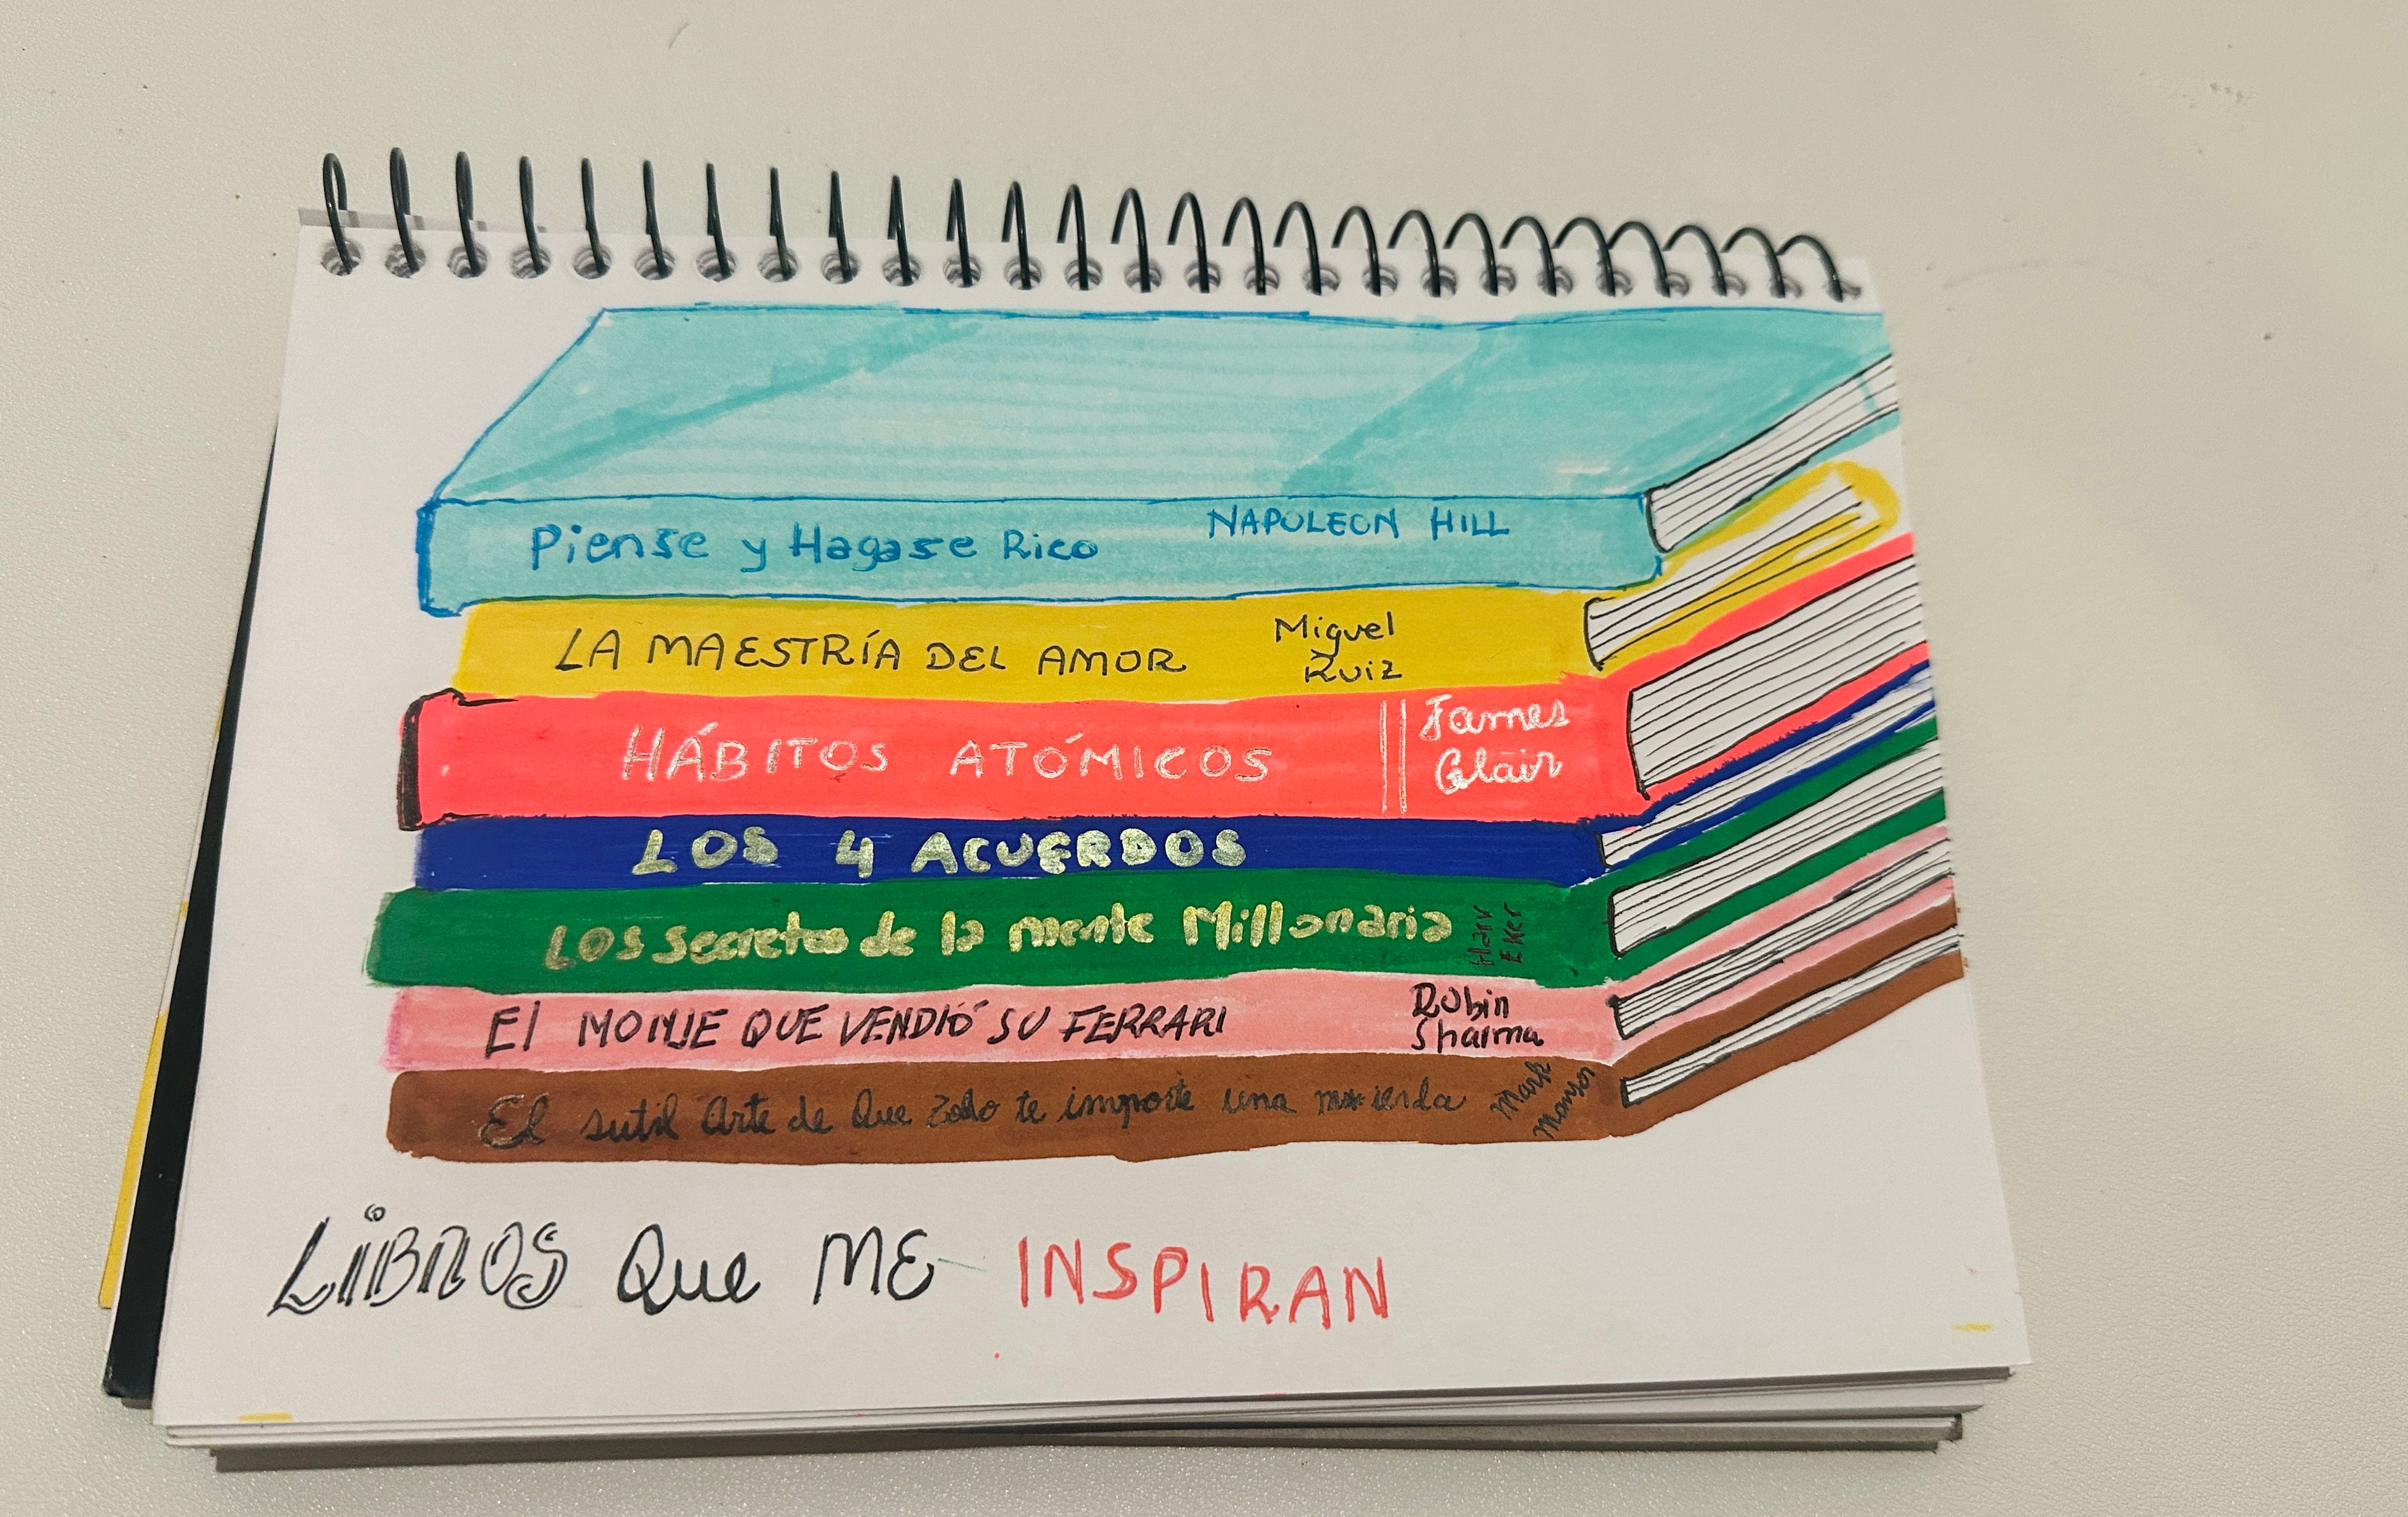 Piense y Hagase Rico NAPOLEON HILL
LA MAESTRÍA DEL AMOR Miguel Ruiz
HÁBITOS ATÓMICOS James Clair
LOS 4 ACUERDOS
LOS secretos de la mente Millonaria Harv Eker
El MONJE QUE VENDIÓ SU FERRARI Robin Sharma
El sutil Arte de Que te importe una m*ierda Mark Manson
LiBROS Que ME INSPIRAN